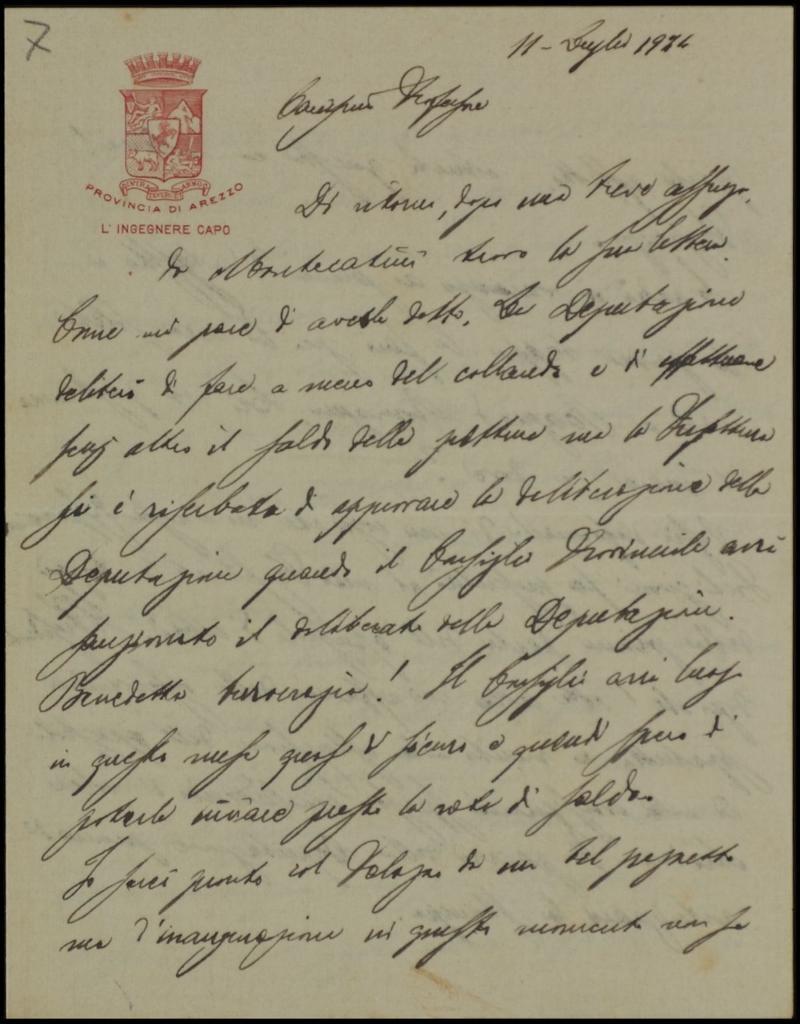 7
11 - Luglio 1924
PROVINCIA DI AREZZO
L'INGEGNERE CAPO
Carissimo Professore
Di ritorno, dopo una breve assenza,
da Montecatini trovo la sua lettera.
Come mi pare di averle detto, la Deputazione
deliberò di fare a meno del collaudo e di effettuare
senz'altro il saldo delle pitture ma la Prefettura
si è riserbata di approvare la deliberazione della
Deputazione quando il Consiglio Provinciale avrà
sanzionato il deliberato della Deputazione.
Benedetta burocrazia! Il Consiglio avrà luogo
in questo mese quasi di sicuro e quindi spero di
poterle inviare presto la rata di saldo.
Io sarei pronto col Palazzo da un bel pezzetto
ma l'inaugurazione in questo momento non si